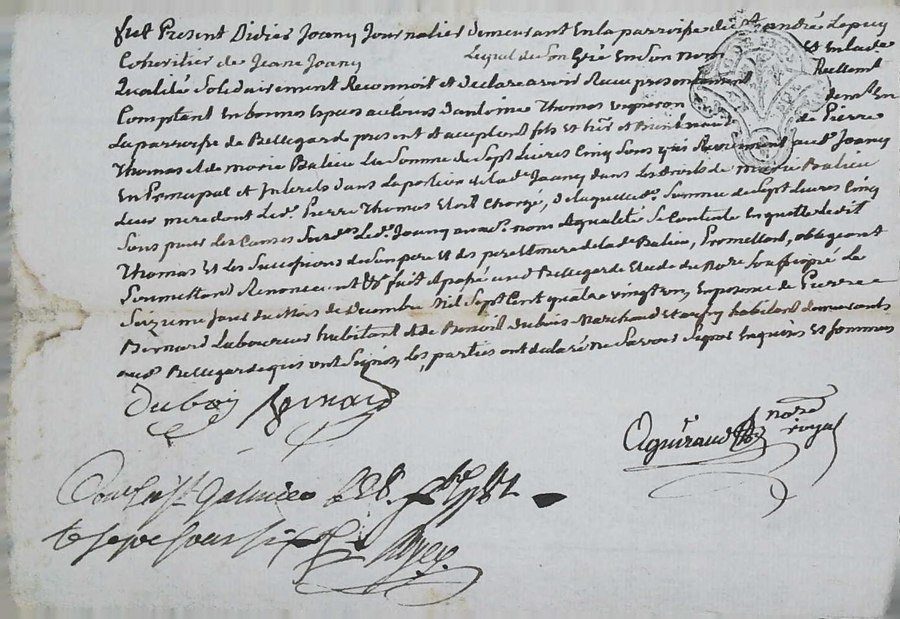 fut Present Didier Joany Journalier demeurant En la parroisse de St andré Lepuy
Coheritier de Jeane Joany Lequel de Son Gré En Son nom Et En lade
Qualité Solidairement Reconnoit et declare avoir Reçu presentement Reellemt
Comptant En bonnes Especes au cours d'antoine Thomas vigneron demt En
La parroisse de Bellegard present et acceptant fils et hér et de Pierre
Thomas et de marie Balieu La Somme de Sept Livres Cinq Sols qui Revenoient aud Joany
En Principal et Interets dans La portion de lade Joany dans Les droits de marie Balieu
Leur mere dont Led Pierre Thomas Etoit Chargé, de laquelle de Somme de Sept Livres Cinq
Sons pour les Causes Susdes Led Joany auxd nom et qualité Se Contente En quitte Ledit
Thomas Et Les Successions de Son pere et de lade Balieu, Promettant, obligeant
Soumettant Renonceant &c fait et passé aud Bellegarde Etude du Nore Soussigné Le
Seizieme Jour du Mois de decembre Mil Sept Cent quatre vingt un Expresence de Pierre
Bernard Laboureur habitant et de Benoit dubois Marchand habitant demeurants
aud Bellegarde qui ont Signés, Les parties ont declaré ne Savoir Signer Enquises Et Sommées
Duboy Bernard
Aguiraud nore royal
Conlé à St Galmier Le 28 Xbre 1781